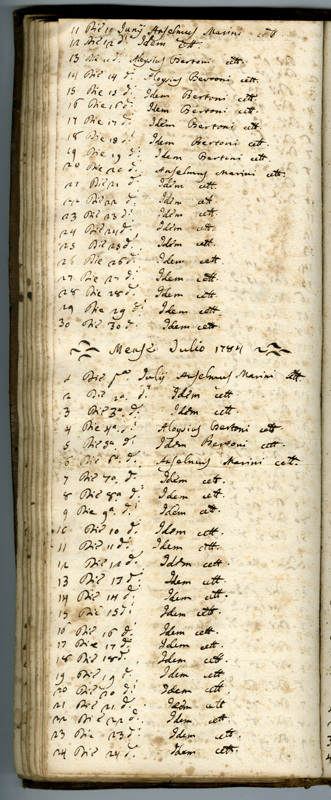 11 Die 11 Junij Anselmus Marini cett
12 Die 12 d.i Idem cett
13 Die d.i Aloysius Bertoni cett.
14 Die 14 d.i Aloysius Bertoni cett.
15 Die 15 d.i Idem Bertoni cett.
16 Die 16 d.i Idem Bertoni cett.
17 Die 17 d.i Idem Bertoni cett.
18 Die 18 d.i Idem Bertoni cett.
19 Die 19 d.i Idem Bertoni cett.
20 Die 20 d.i Anselmus Marini cett.
21 Die 21 d.i Idem cett.
22 Die 22 d.i Idem cett
23 Die 23 d.i Idem cett
24 Die 24 d.i Idem cett.
25 Die 25 d.i Idem cett
26 Die 26 d.i Idem cett.
27 Die 27 d.i Idem cett
28 Die 28 d.i Idem cett
29 Die 29 d.i Idem cett
30 Die 30 d.i Idem cett
Mense Julio 1784
1 Die p.mo Julij Anselmus Marini cett.
2 Die 2o. d.i Idem cett
3 Die 3o. d.i Idem cett
4 Die 4o. d.i Aloysius Bertoni cett
5 Die 5o d.i Idem Bertoni cett.
6 Die 6o d.i Anselmus Marini cett.
7 Die 7o. d.i Idem cett.
8 Die 8o d.i Idem cett.
9 Die 9o. d.i Idem cett
10 Die 10 d.i Idem cett.
11 Die 11 d.i Idem cett.
12 Die 12 d.i Idem cett.
13 Die 13 d.i Idem cett.
14 Die 14 d.i Idem cett.
15 Die 15 d.i Idem cett.
16 Die 16 d.i Idem cett.
17 Die 17 d.i Idem cett.
18 Die 18 d.i Idem cett.
19 Die 19 d.i Idem cett
20 Die 20 d.i Idem cett.
21 Die 21 d.i Idem cett.
22 Die 22 d.i Idem cett
23 Die 23 d.i Idem cett.
24 Die 24 d.i Idem cett.